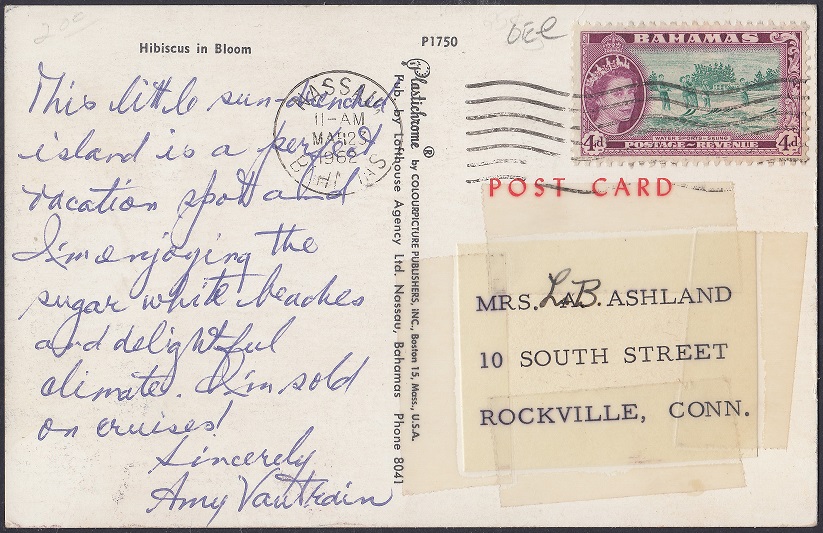 Hibiscus in Bloom
P1750
This little sun-drenched
island is a perfect
vacation spot and
I'm enjoying the
sugar white beaches
and delightful
climate. I'm sold
on cruises!
Sincerely
Amy Vautrain
NASSAU
11-AM
1962
BAHAMAS
4d
4d
WATER SPORTS-SKIING
POSTAGE~REVENUE
Plastichrome ® by COLOURPICTURE PUBLISHERS, INC., Boston 15, Mass., U.S.A.
Pub. by Lofthouse Agency Ltd. Nassau, Bahamas Phone 8041
POST CARD
MRS. L.B. ASHLAND
10 SOUTH STREET
ROCKVILLE, CONN.